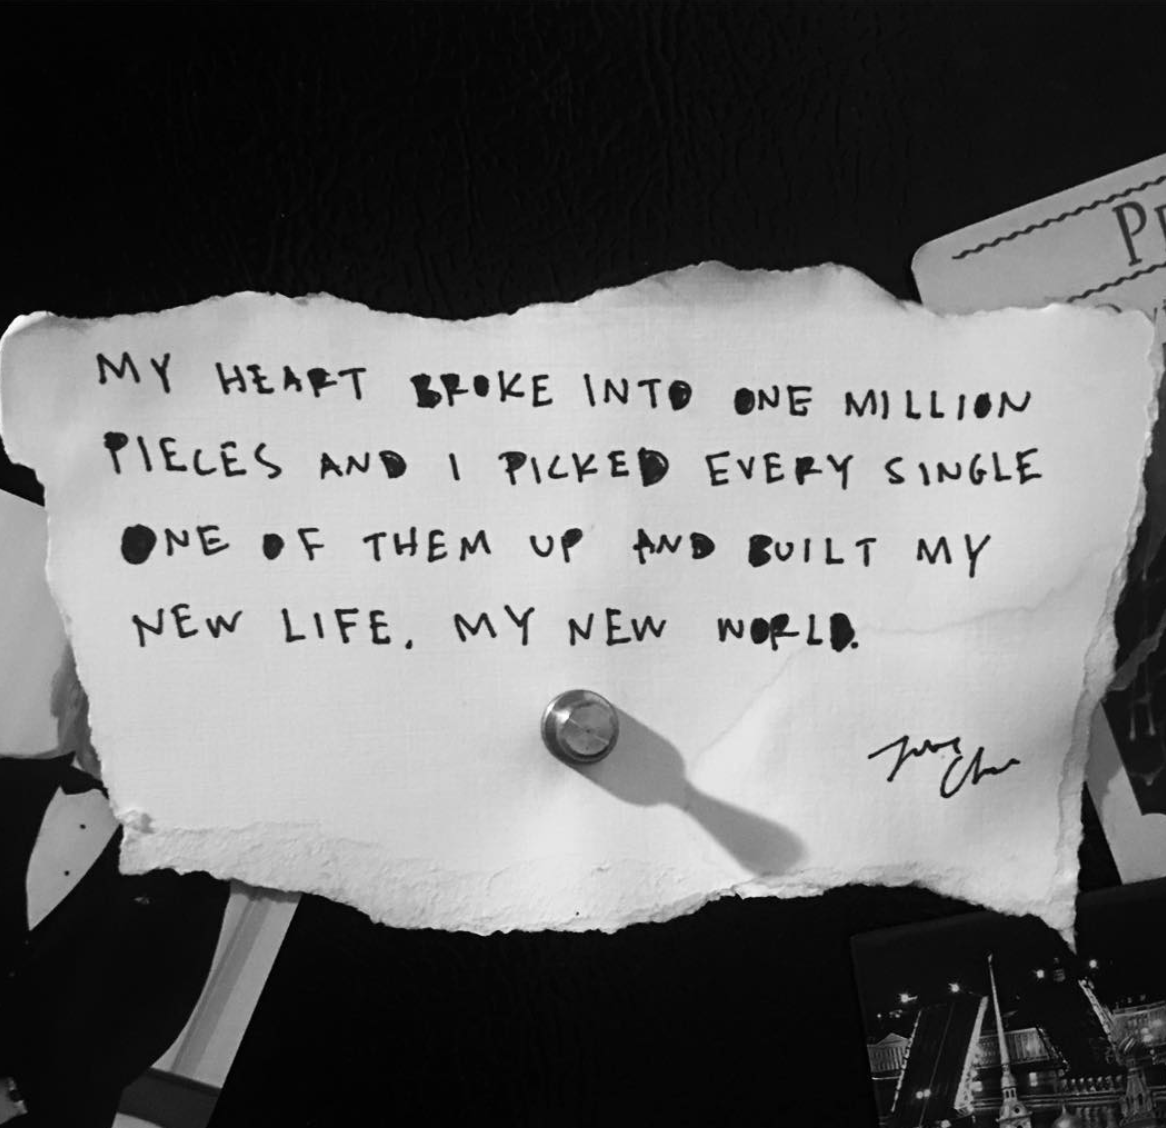 MY HEART BROKE INTO ONE MILLION
PIECES AND I PICKED EVERY SINGLE
ONE OF THEM UP AND BUILT MY
NEW LIFE. MY NEW WORLD.